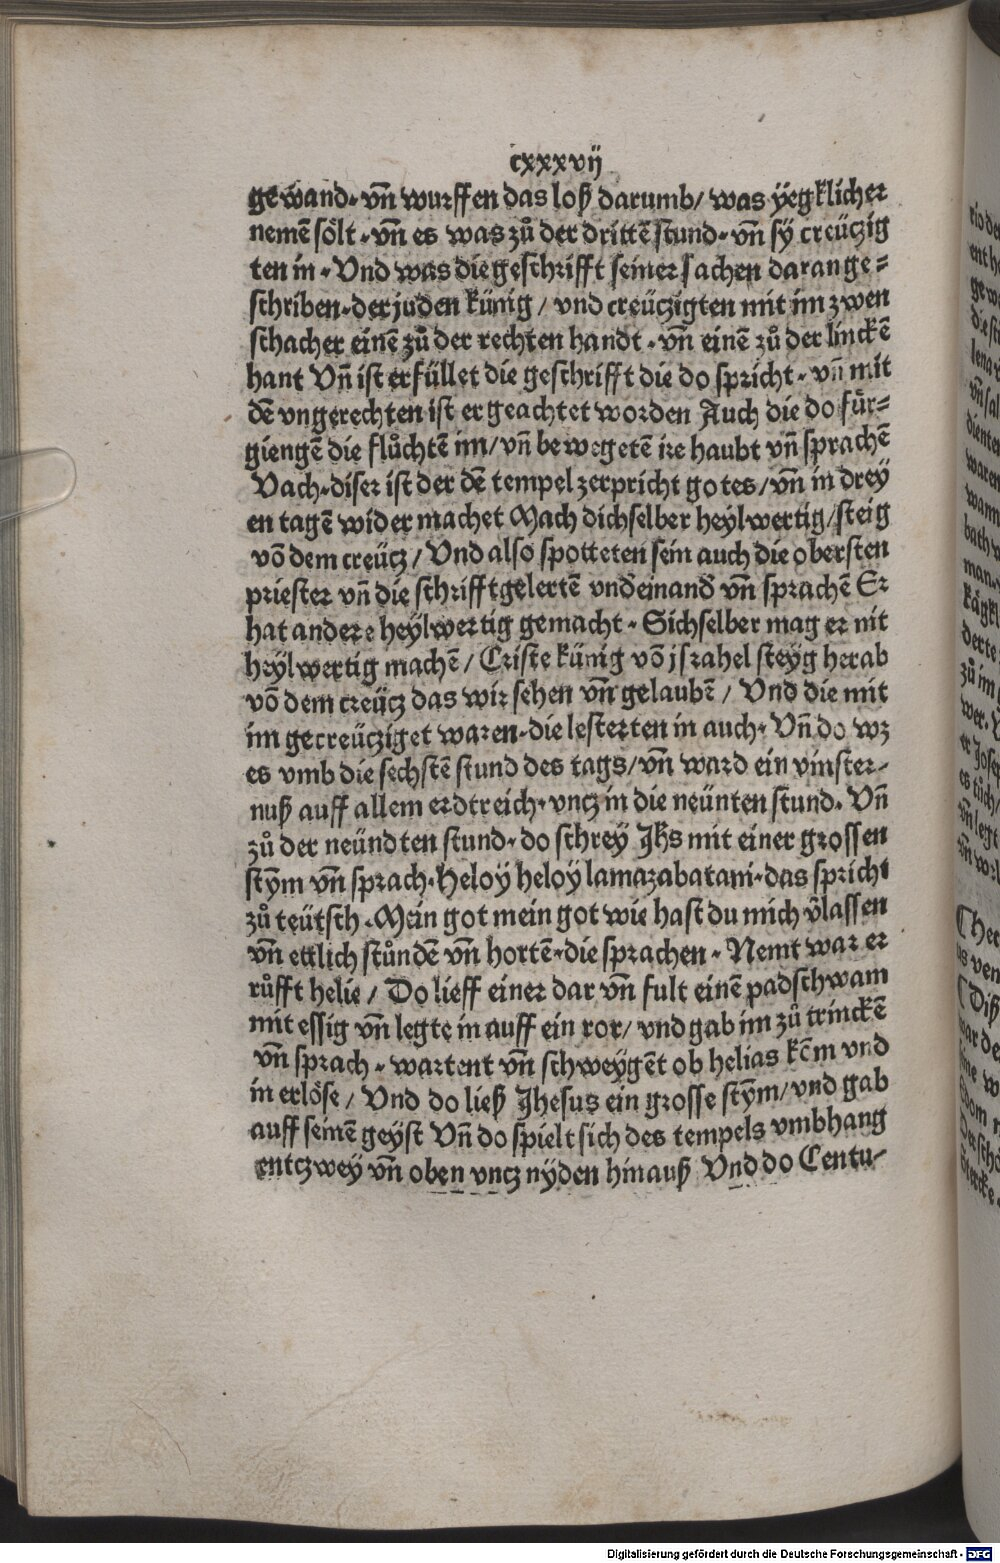 cxxxvij
gewand. vn̄ wurffen das loß darumb/ was yegklicher
nemē sölt. vn̄ es was zů der drittē stund. vn̄ sy creützig
ten in. Vnd was die geschrifft seiner sachen daran ge=
schriben. der juden künig/ vnd creützigten mit im zwen
schacher einē zů der rechten handt. vn̄ einē zů der linckē
hant Vn̄ ist erfüllet die geschrifft die do spricht. vn̄ mit
dē vngerechten ist er geachtet worden Auch die do für=
giengē die flůchtē im/ vn̄ bewegetē ire haubt vn̄ sprachē
Vach. diser ist der dē tempel zerpricht gotes/ vn̄ in drey
en tagē wider machet Mach dichselber heylwertig/ steig
vō dem creütz/ Vnd also spotteten sein auch die obersten
priester vn̄ die schrifftgelertē vndeinand̄ vn̄ sprachē Er
hat andere heylwertig gemacht. Sichselber mag er nit
heylwertig machē/ Criste künig vō jsrahel steyg herab
vō dem creütz das wir sehen vn̄ gelaubē/ Vnd die mit
im gecreütziget waren. die lesterten in auch. Vn̄ do wz
es vmb die sechstē stund des tags/ vn̄ ward ein vinster-
nuß auff allem erdtreich. vntz in die neünten stund. Vn̄
zů der neündten stund. do schrey Jhs mit einer grossen
stym vn̄ sprach. Heloy heloy lamazabatani. das spricht
zů teütsch. Mein got mein got wie hast du mich v̄lassen
vn̄ ettlich stůndē vn̄ hortē. die sprachen. Nemt war er
růfft helie/ Do lieff einer dar vn̄ fult einē padschwam
mit essig vn̄ legte in auff ein ror/ vnd gab im zů trinckē
vn̄ sprach. wartent vn̄ schweygēt ob helias kēm vnd
in erlöse/ Vnd do ließ Jhesus ein grosse stym/ vnd gab
auff seinē geyst Vn̄ do spielt sich des tempels vmbhang
entzwey vn̄ oben vntz nyden hinauß Vnd do Centu-
Digitalisierung gefördert durch die Deutsche Forschungsgemeinschaft - DFG